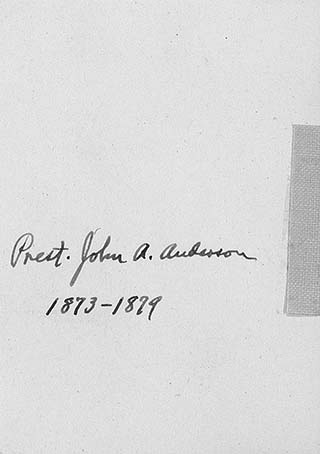 Prest. John A. Anderson
1873-1879